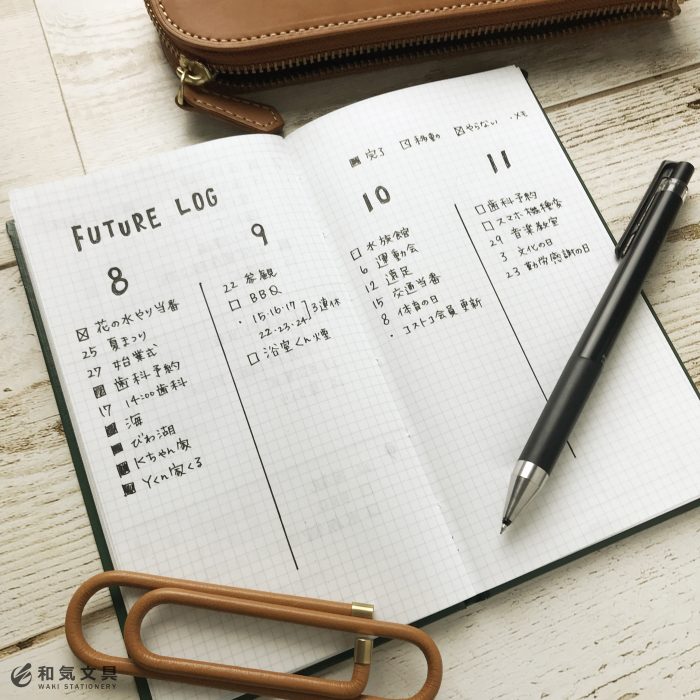 FUTURE LOG
8
花の水やり当番
25 夏まつり
27 始業式
歯科予約
17 14:00歯科
海
びわ湖
Kちゃん家
Yくん家くる
9
22 参観
BBQ
・15・16・17
22・23・24 3連休
浴室くん煙
完了 移動 やらない ・メモ
10
水族館
6 運動会
12 遠足
15 交通当番
8 体育の日
・コストコ会員更新
11
歯科予約
スマホ機種変
29 音楽教室
3 文化の日
23 勤労感謝の日
和気文具
WAKI STATIONERY